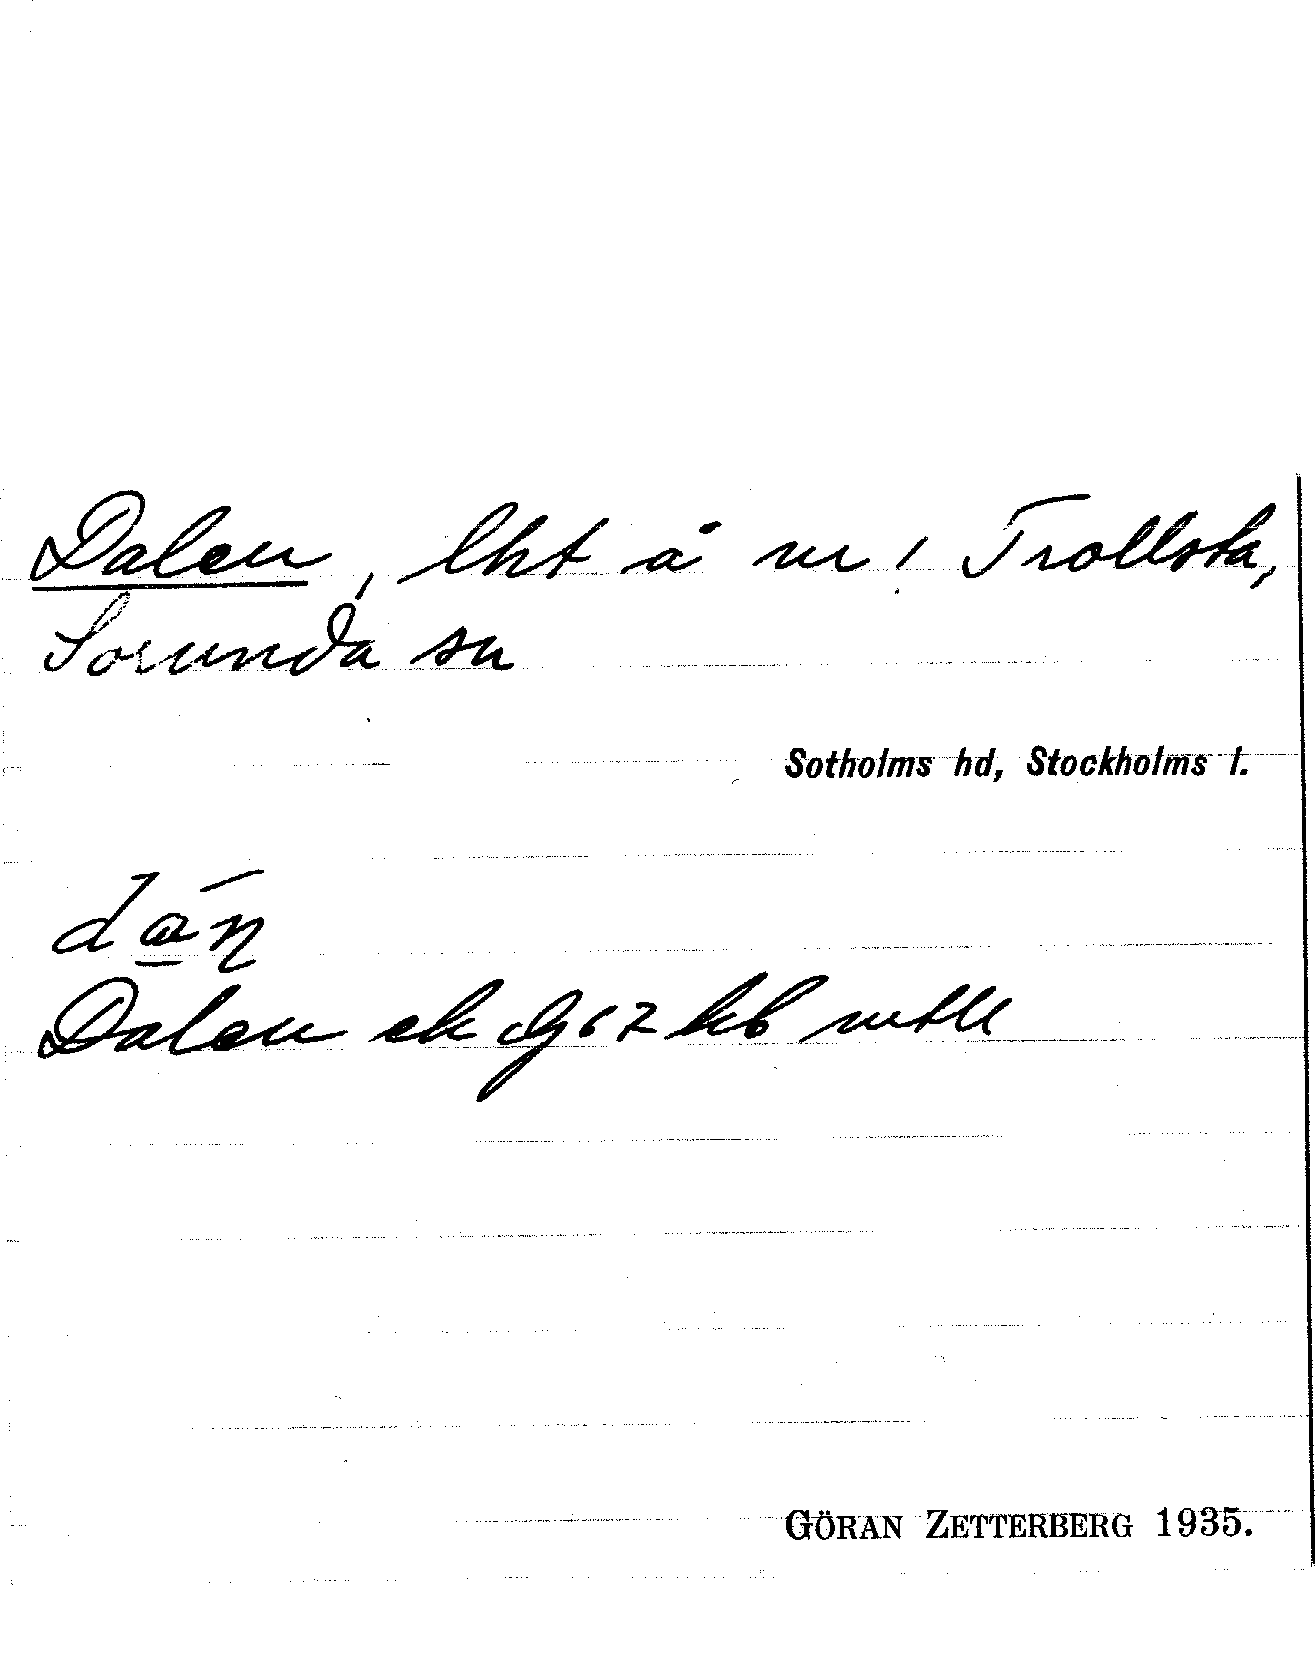 Dalen, lht å nr 1 Trollsta,
Sorunda sn
Sotholms hd, Stockholms l.
Dalen ek
GÖRAN ZETTERBERG 1935.